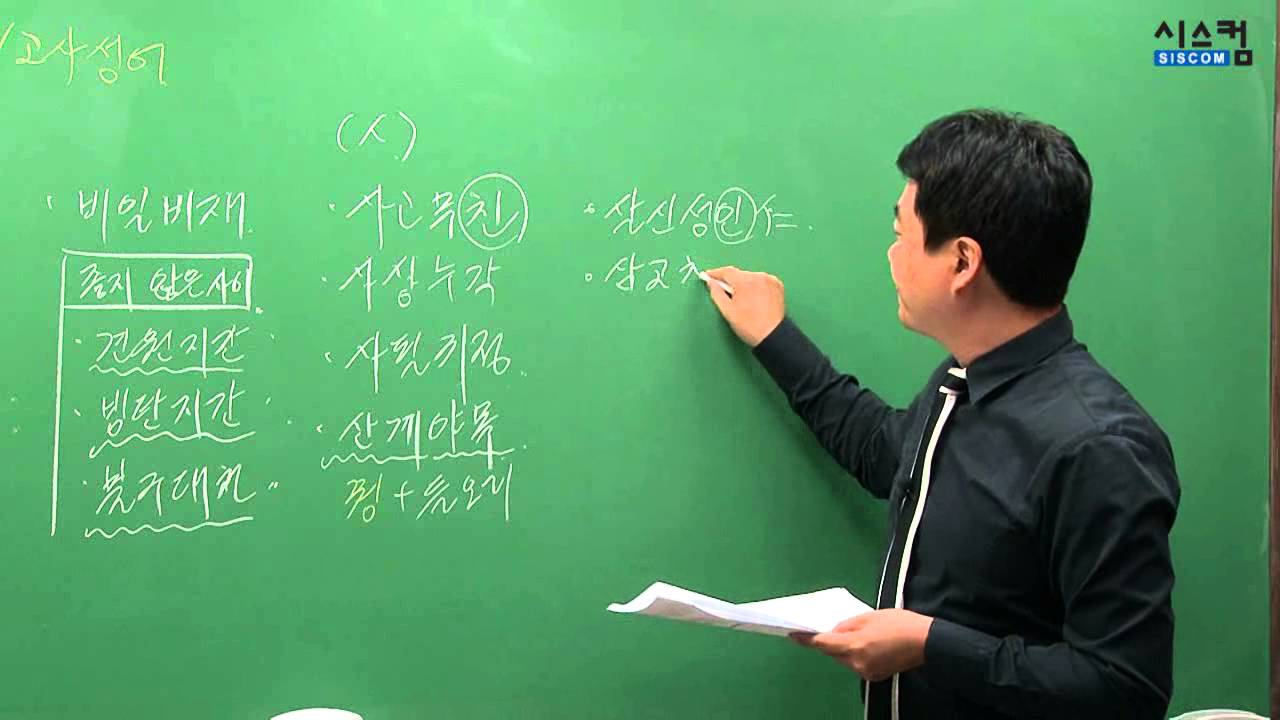 고사성어
시스컴
SISCOM
(ㅅ)
· 비일비재.
좋지 않은 사이
· 견원지간
· 빙탄지간
· 불구대천
· 사고무친
· 사상누각
· 사필귀정
· 산계야목
꿩 + 들오리
· 살신성인 仁
· 삼고ㅊ